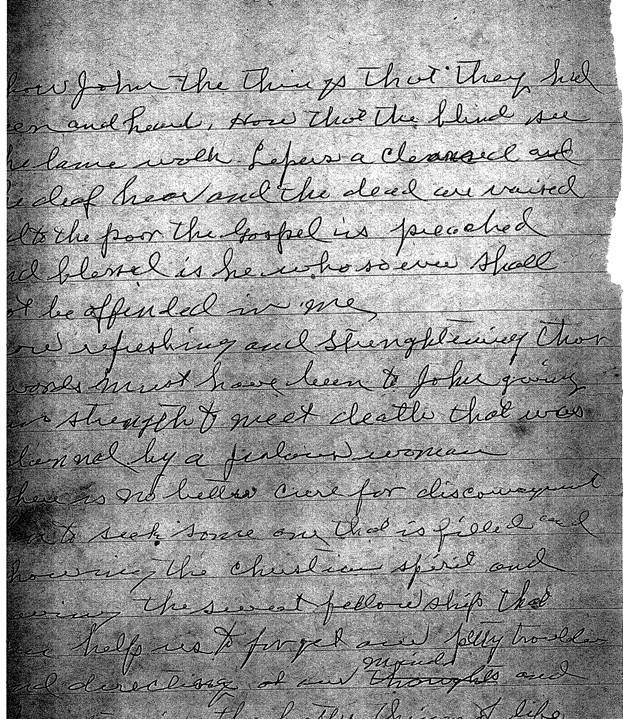 how John the things that they had
en and heard, How that the blind see
he lame walk Lepers a cleansed and
e deaf hear and the dead are raised
d to the poor the Gospel is preached
nd blessed is he whosoever shall
ot be offended in me,
ow refreshing and strenghtening thos
words must have been to John giving
strength to meet death that was
planned by a jealous woman
there is no better cure for
to seek some one that is filled and
howing the christian spirit and
the sweet fellowship that
helps us to forget our petty troubles
minds
nd directing of our thoughts and
the things of life